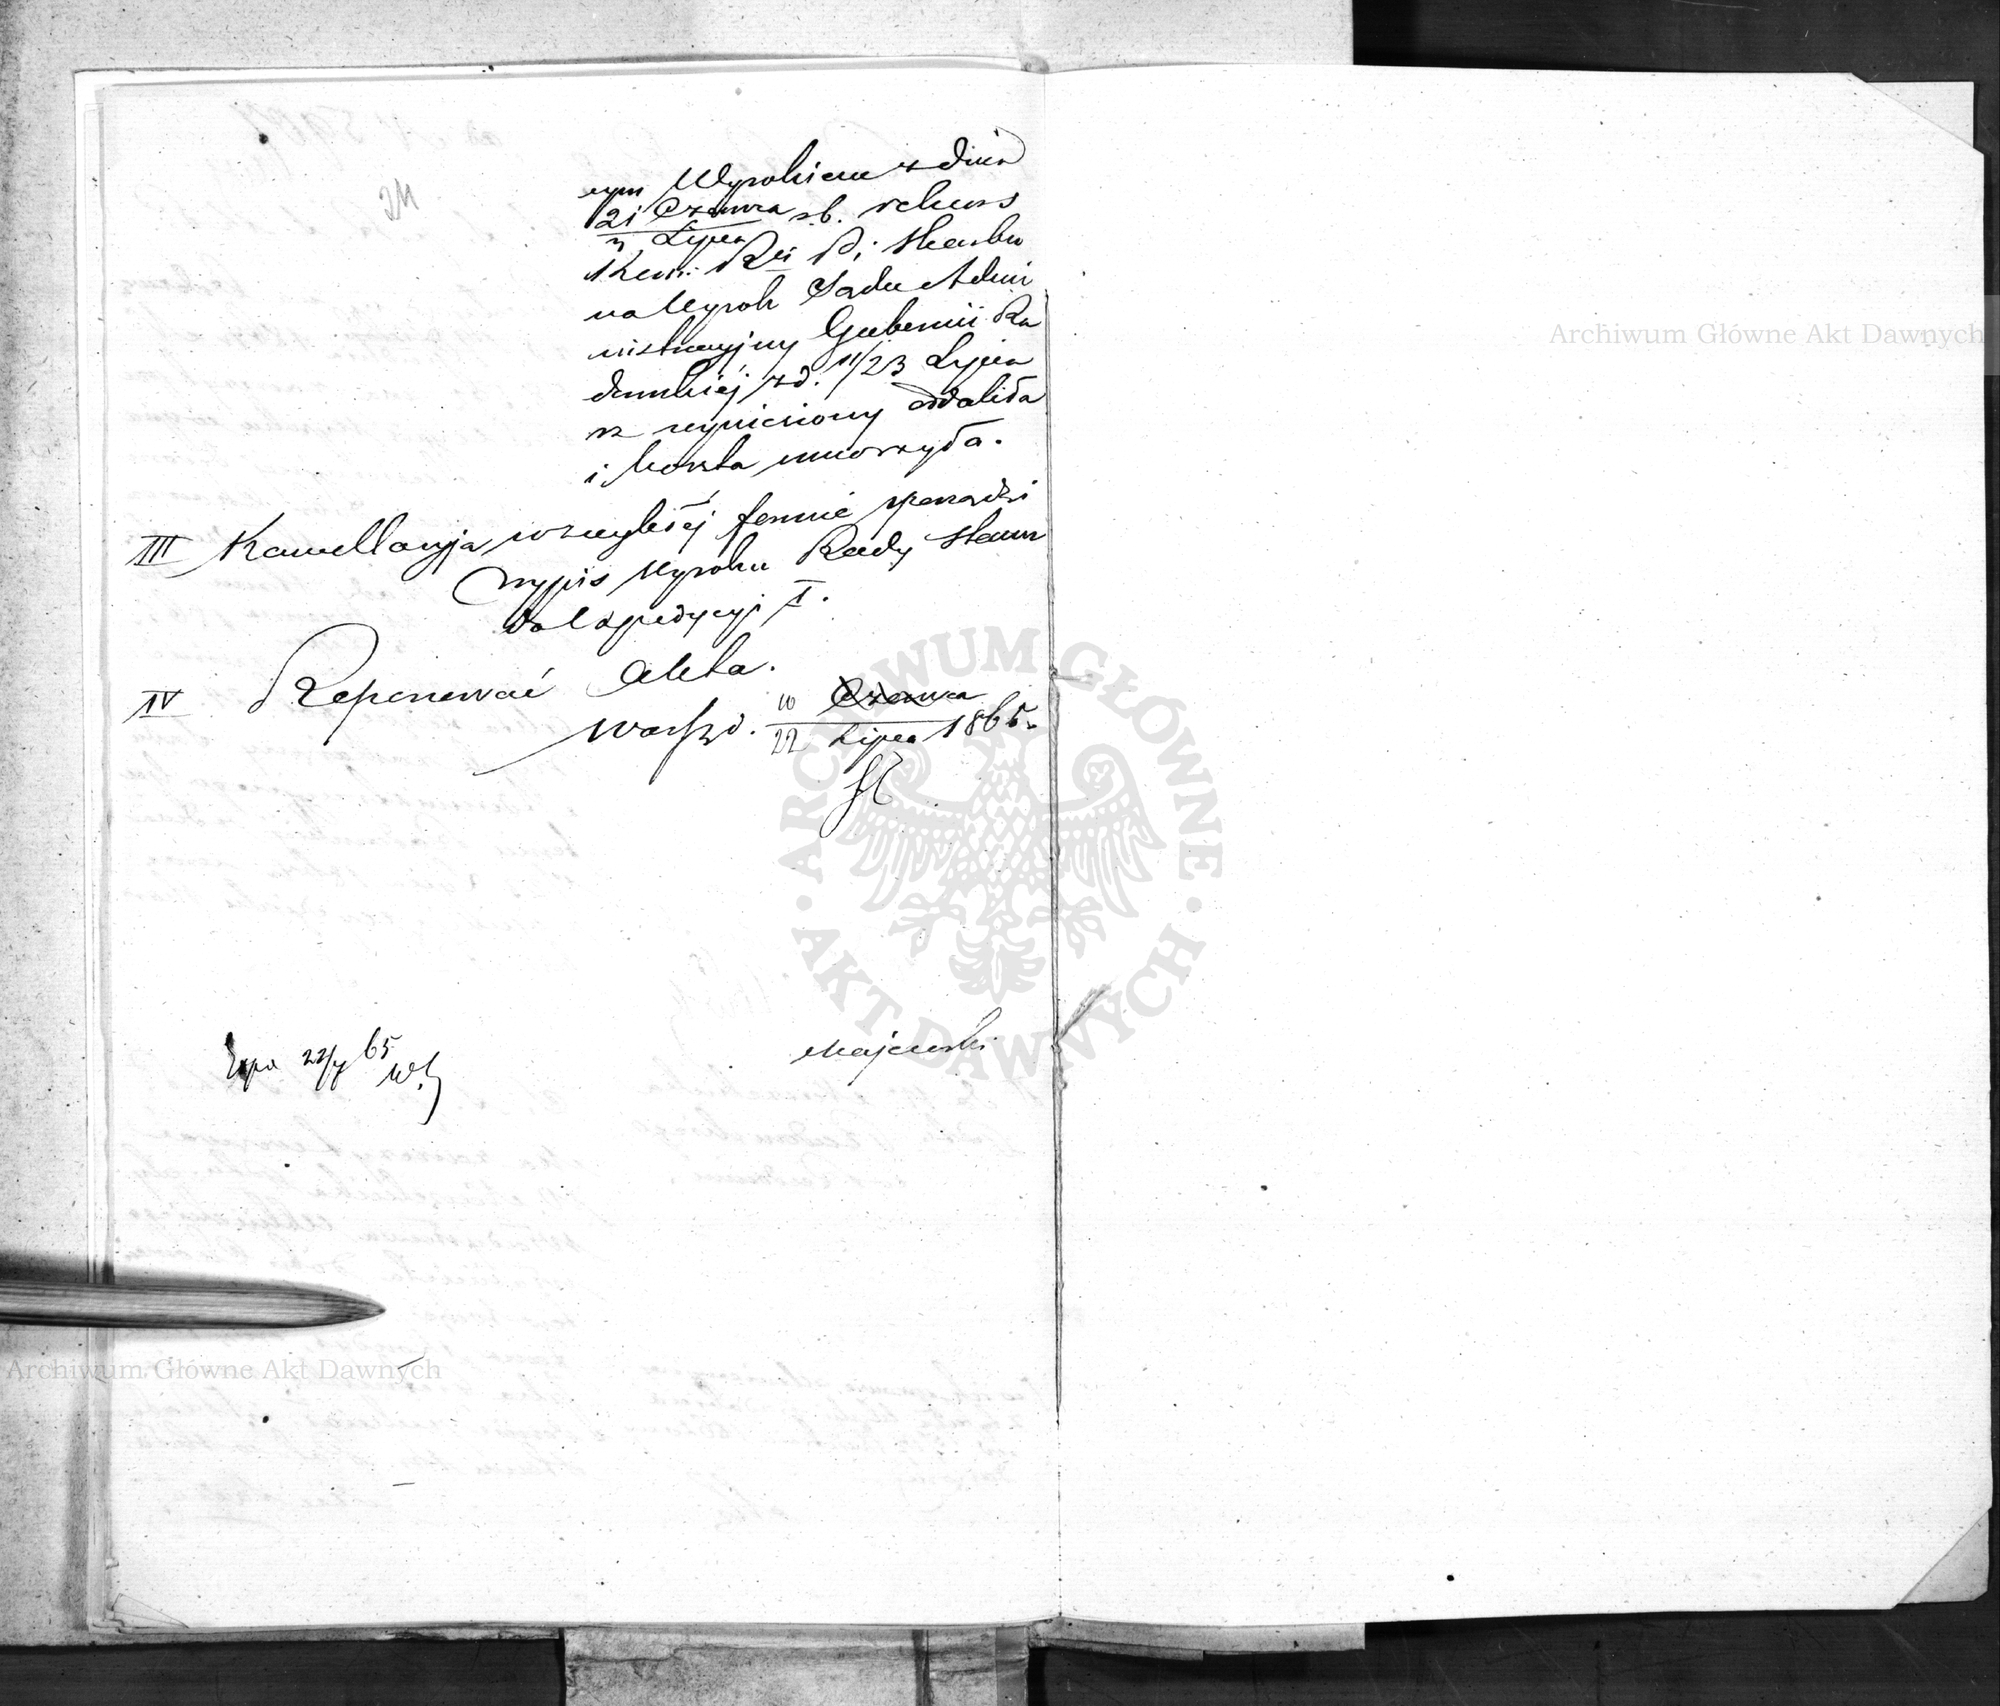 24
nym Wyrokiem z dnia
21 Czerwca
3 Lipca r.b. rekurs
Kom. Rzi P. i Skarbu
na Wyrok Sądu Admi
nistracyjny Gubernii Ra
domskiej z d. 11/23 Lipca
wyniesiony oddaliła
i koszta umorzyła.
III Kancellaryja w zwykłej formie sporządzi
wypis wyroku Rady Stanu
do Expedycyi I.
IV Reponować Akta.
Warsz. d. 10 Czerwca
22 Lipca 1865.
Majewski
Exp. 22/7 65
Archiwum Główne Akt Dawnych
Archiwum Główne Akt Dawnych
ARCHIWUM GŁÓWNE AKT DAWNYCH